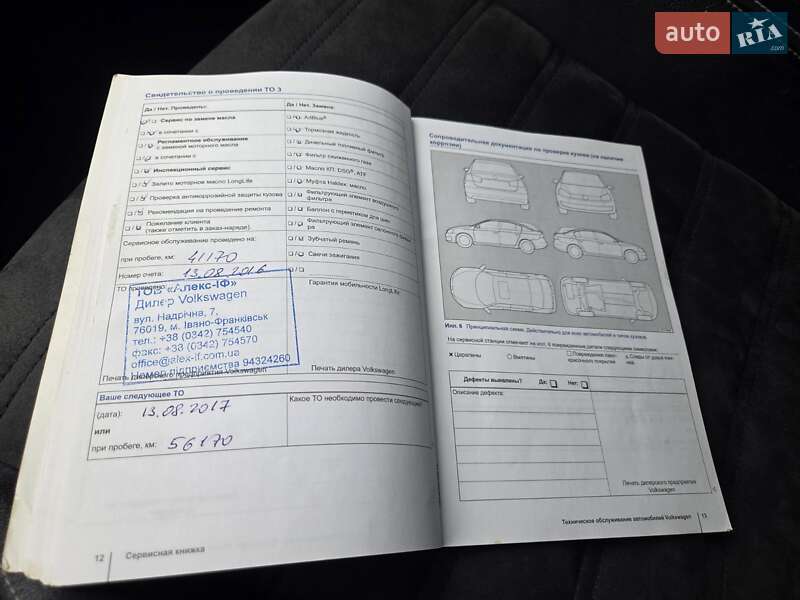 auto RIA .com
Свидетельство о проведении ТО 3
Да / Нет. Проведены:
Сервис по замене масла
в сочетании с
Регламентное обслуживание
с заменой моторного масла
в сочетании с
Инспекционный сервис
Залито моторное масло LongLife
Проверка антикоррозийной защиты кузова
Рекомендация на проведение ремонта
Пожелание клиента
(также отметить в заказ-наряде).
Сервисное обслуживание проведено на:
при пробеге, км: 41170
Номер счета: 13.08.2016
ТО проведено:
ТОВ «Алекс-ІФ»
Дилер Volkswagen
вул. Надрічна, 7,
76019, м. Івано-Франківськ
тел.: +38 (0342) 754540
факс: +38 (0342) 754570
office@alex-if.com.ua
Номер підприємства 94324260
Печать дилерского предприятия Volkswagen
Да / Нет. Замена:
AdBlue®
Тормозная жидкость
Дизельный топливный фильтр
Фильтр сжиженного газа
Масло КП, DSG®, ATF
Муфта Haldex: масло
Фильтрующий элемент воздушного
фильтра
Баллон с герметиком для шин
Фильтрующий элемент салонного фильт-
ра
Зубчатый ремень
Свечи зажигания
Гарантия мобильности LongLife:
Печать дилера Volkswagen
Ваше следующее ТО
(дата): 13.08.2017
или
при пробеге, км: 56170
Какое ТО необходимо провести следующим?
12 Сервисная книжка
Сопроводительная документация по проверке кузова (на наличие
коррозии)
Илл. 6 Принципиальная схема. Действительно для всех автомобилей и типов кузовов.
На сервисной станции отметят на илл. 6 поврежденные детали следующими символами:
× Царапины
○ Вмятины
□ Повреждение лако-
красочного покрытия
Следы от ударов кам-
ней.
Дефекты выявлены? Да: Нет:
Описание дефекта:
Печать дилерского предприятия
Volkswagen
Техническое обслуживание автомобилей Volkswagen 13